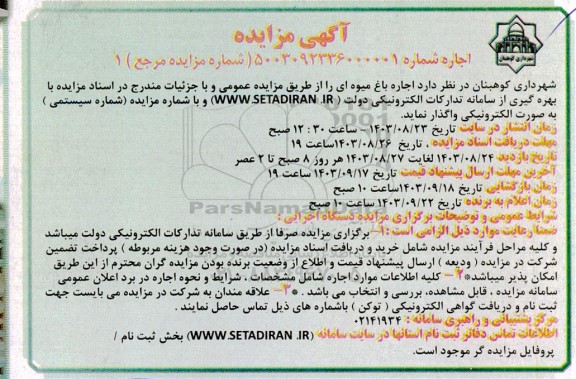 آگهی مزایده
اجاره شماره ۵۰۰۳۰۹۲۳۳۶۰۰۰۰۰۱ (شماره مزایده مرجع ) ۱
شهرداری کوهبنان
شهرداری کوهبنان در نظر دارد اجاره باغ میوه ای را از طریق مزایده عمومی و با جزئیات مندرج در اسناد مزایده با
بهره گیری از سامانه تدارکات الکترونیکی دولت ( WWW.SETADIRAN .IR) و با شماره مزایده (شماره سیستمی )
به صورت الکترونیکی واگذار نماید.
زمان انتشار در سایت تاریخ ۱۴۰۳/۰۸/۲۳ – ساعت ۳۰ : ۱۲ صبح
مهلت دریافت اسناد مزایده . تاریخ ۱۴۰۳/۰۸/۲۶ساعت ۱۹
تاریخ بازدید ۱۴۰۳/۰۸/۲۴ لغایت ۱۴۰۳/۰۸/۲۷ هر روز ۸ صبح تا ۲ عصر
آخرین مهلت ارسال پیشنهاد قیمت تاریخ ۱۴۰۳/۰۹/۱۷ ساعت ۱۹
زمان بازگشایی تاریخ ۱۴۰۳/۰۹/۱۸ساعت ۱۰ صبح
زمان اعلام به برنده تاریخ ۱۴۰۳/۰۹/۲۲ ساعت ۱۰ صبح
شرایط عمومی و توضیحات برگزاری مزایده دستگاه اجرایی :
ضمنا رعایت موارد ذیل الزامی است : ۱– برگزاری مزایده صرفا از طریق سامانه تدارکات الکترونیکی دولت میباشد
و کلیه مراحل فرآیند مزایده شامل خرید و دریافت اسناد مزایده (در صورت وجود هزینه مربوطه ) پرداخت تضمین
شرکت در مزایده ( ودیعه ) ارسال پیشنهاد قیمت و اطلاع از وضعیت برنده بودن مزایده گران محترم از این طریق
امکان پذیر میباشد*۲– کلیه اطلاعات موارد اجاره شامل مشخصات . شرایط و نحوه اجاره در برد اعلان عمومی
سامانه مزایده ، قابل مشاهده، بررسی و انتخاب می باشد . *۳– علاقه مندان به شرکت در مزایده می بایست جهت
ثبت نام و دریافت گواهی الکترونیکی ( توکن ) باشماره های ذیل تماس حاصل نمایند .
مرکز پشتیبانی و راهبری سامانه : ۰۲۱۴۱۹۳۴
اطلاعات تماس دفاتر ثبت نام استانها در سایت سامانه (WWW.SETADIRAN .IR) بخش ثبت نام /
پروفایل مزایده گر موجود است.